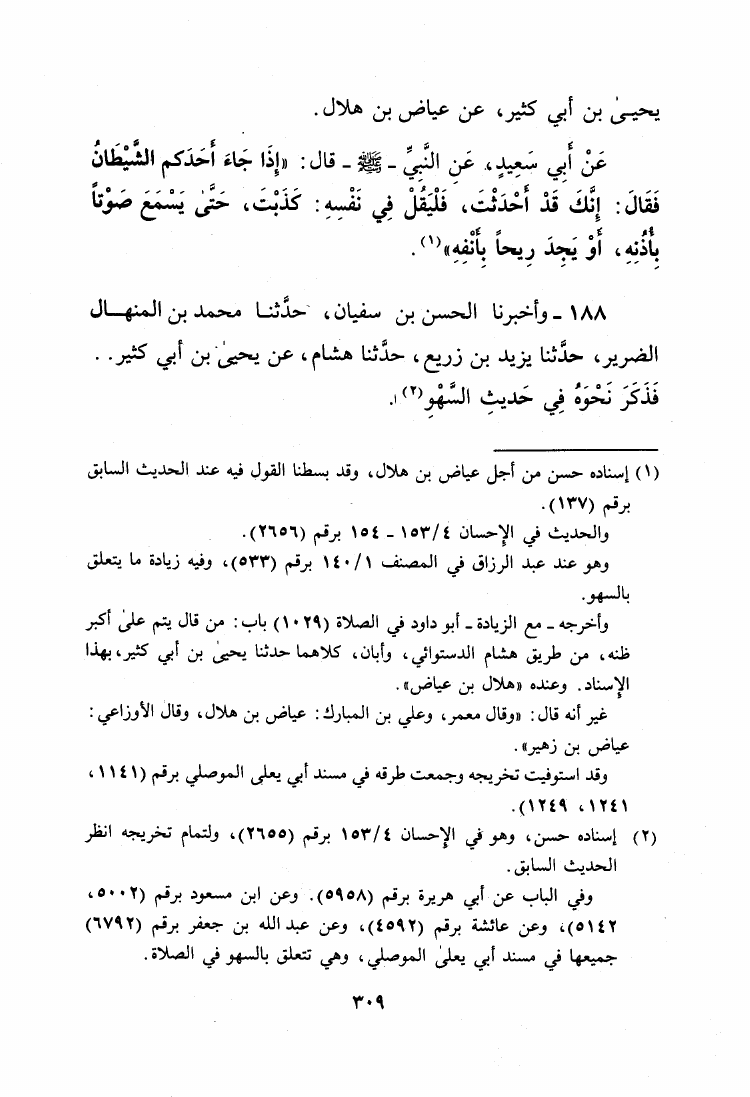 يحيىٰ بن أبي كثير، عن عياض بن هلال.
عَنْ أَبي سَعِيدٍ، عَنِ النَّبِيِّ - ﷺ - قال: «إِذَا جَاءَ أَحَدَكم الشَّيْطَانُ
فَقَالَ: إِنَّكَ قَدْ أَحْدَثْتَ، فَلْيَقُلْ فِي نَفْسِهِ: كَذَبْتَ، حَتَّىٰ يَسْمَعَ صَوْتاً
بِأُذُنِهِ، أَوْ يَجِدَ رِيحاً بِأَنْفِهِ»(١).
١٨٨ - وأخبرنا الحسن بن سفيان، حدَّثنا محمد بن المنهال
الضرير، حدَّثنا يزيد بن زريع، حدَّثنا هشام، عن يحيىٰ بن أبي كثير. .
فَذَكَرَ نَحْوَهُ فِي حَديثِ السَّهْوِ(٢).
(١) إسناده حسن من أجل عياض بن هلال، وقد بسطنا القول فيه عند الحديث السابق
برقم (١٣٧).
والحديث في الإحسان ١٥٣/٤ - ١٥٤ برقم (٢٦٥٦).
وهو عند عبد الرزاق في المصنف ١٤٠/١ برقم (٥٣٣)، وفيه زيادة ما يتعلق
بالسهو.
وأخرجه - مع الزيادة - أبو داود في الصلاة (١٠٢٩) باب: من قال يتم علىٰ أكبر
ظنه، من طريق هشام الدستوائي، وأبان، كلاهما حدثنا يحيىٰ بن أبي كثير، بهذا
الإسناد. وعنده «هلال بن عياض».
غير أنه قال: «وقال معمر، وعلي بن المبارك: عياض بن هلال، وقال الأوزاعي:
عياض بن زهير».
وقد استوفيت تخريجه وجمعت طرقه في مسند أبي يعلى الموصلي برقم (١١٤١،
١٢٤١، ١٢٤٩).
(٢) إسناده حسن، وهو في الإحسان ١٥٣/٤ برقم (٢٦٥٥)، ولتمام تخريجه انظر
الحديث السابق.
وفي الباب عن أبي هريرة برقم (٥٩٥٨). وعن ابن مسعود برقم (٥٠٠٢،
٥١٤٢)، وعن عائشة برقم (٤٥٩٢)، وعن عبد الله بن جعفر برقم (٦٧٩٢)
جميعها في مسند أبي يعلىٰ الموصلي، وهي تتعلق بالسهو في الصلاة.
٣٠٩